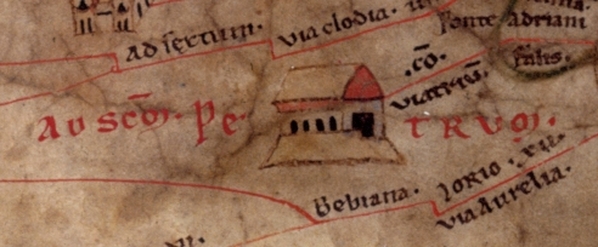 ad sextum. via clodia.
ponte adriani
.cō. falis.
viatriū.
Ad scm̄. Pe TRUM.
Bebiana. lorio. XII.
via Aurelia.